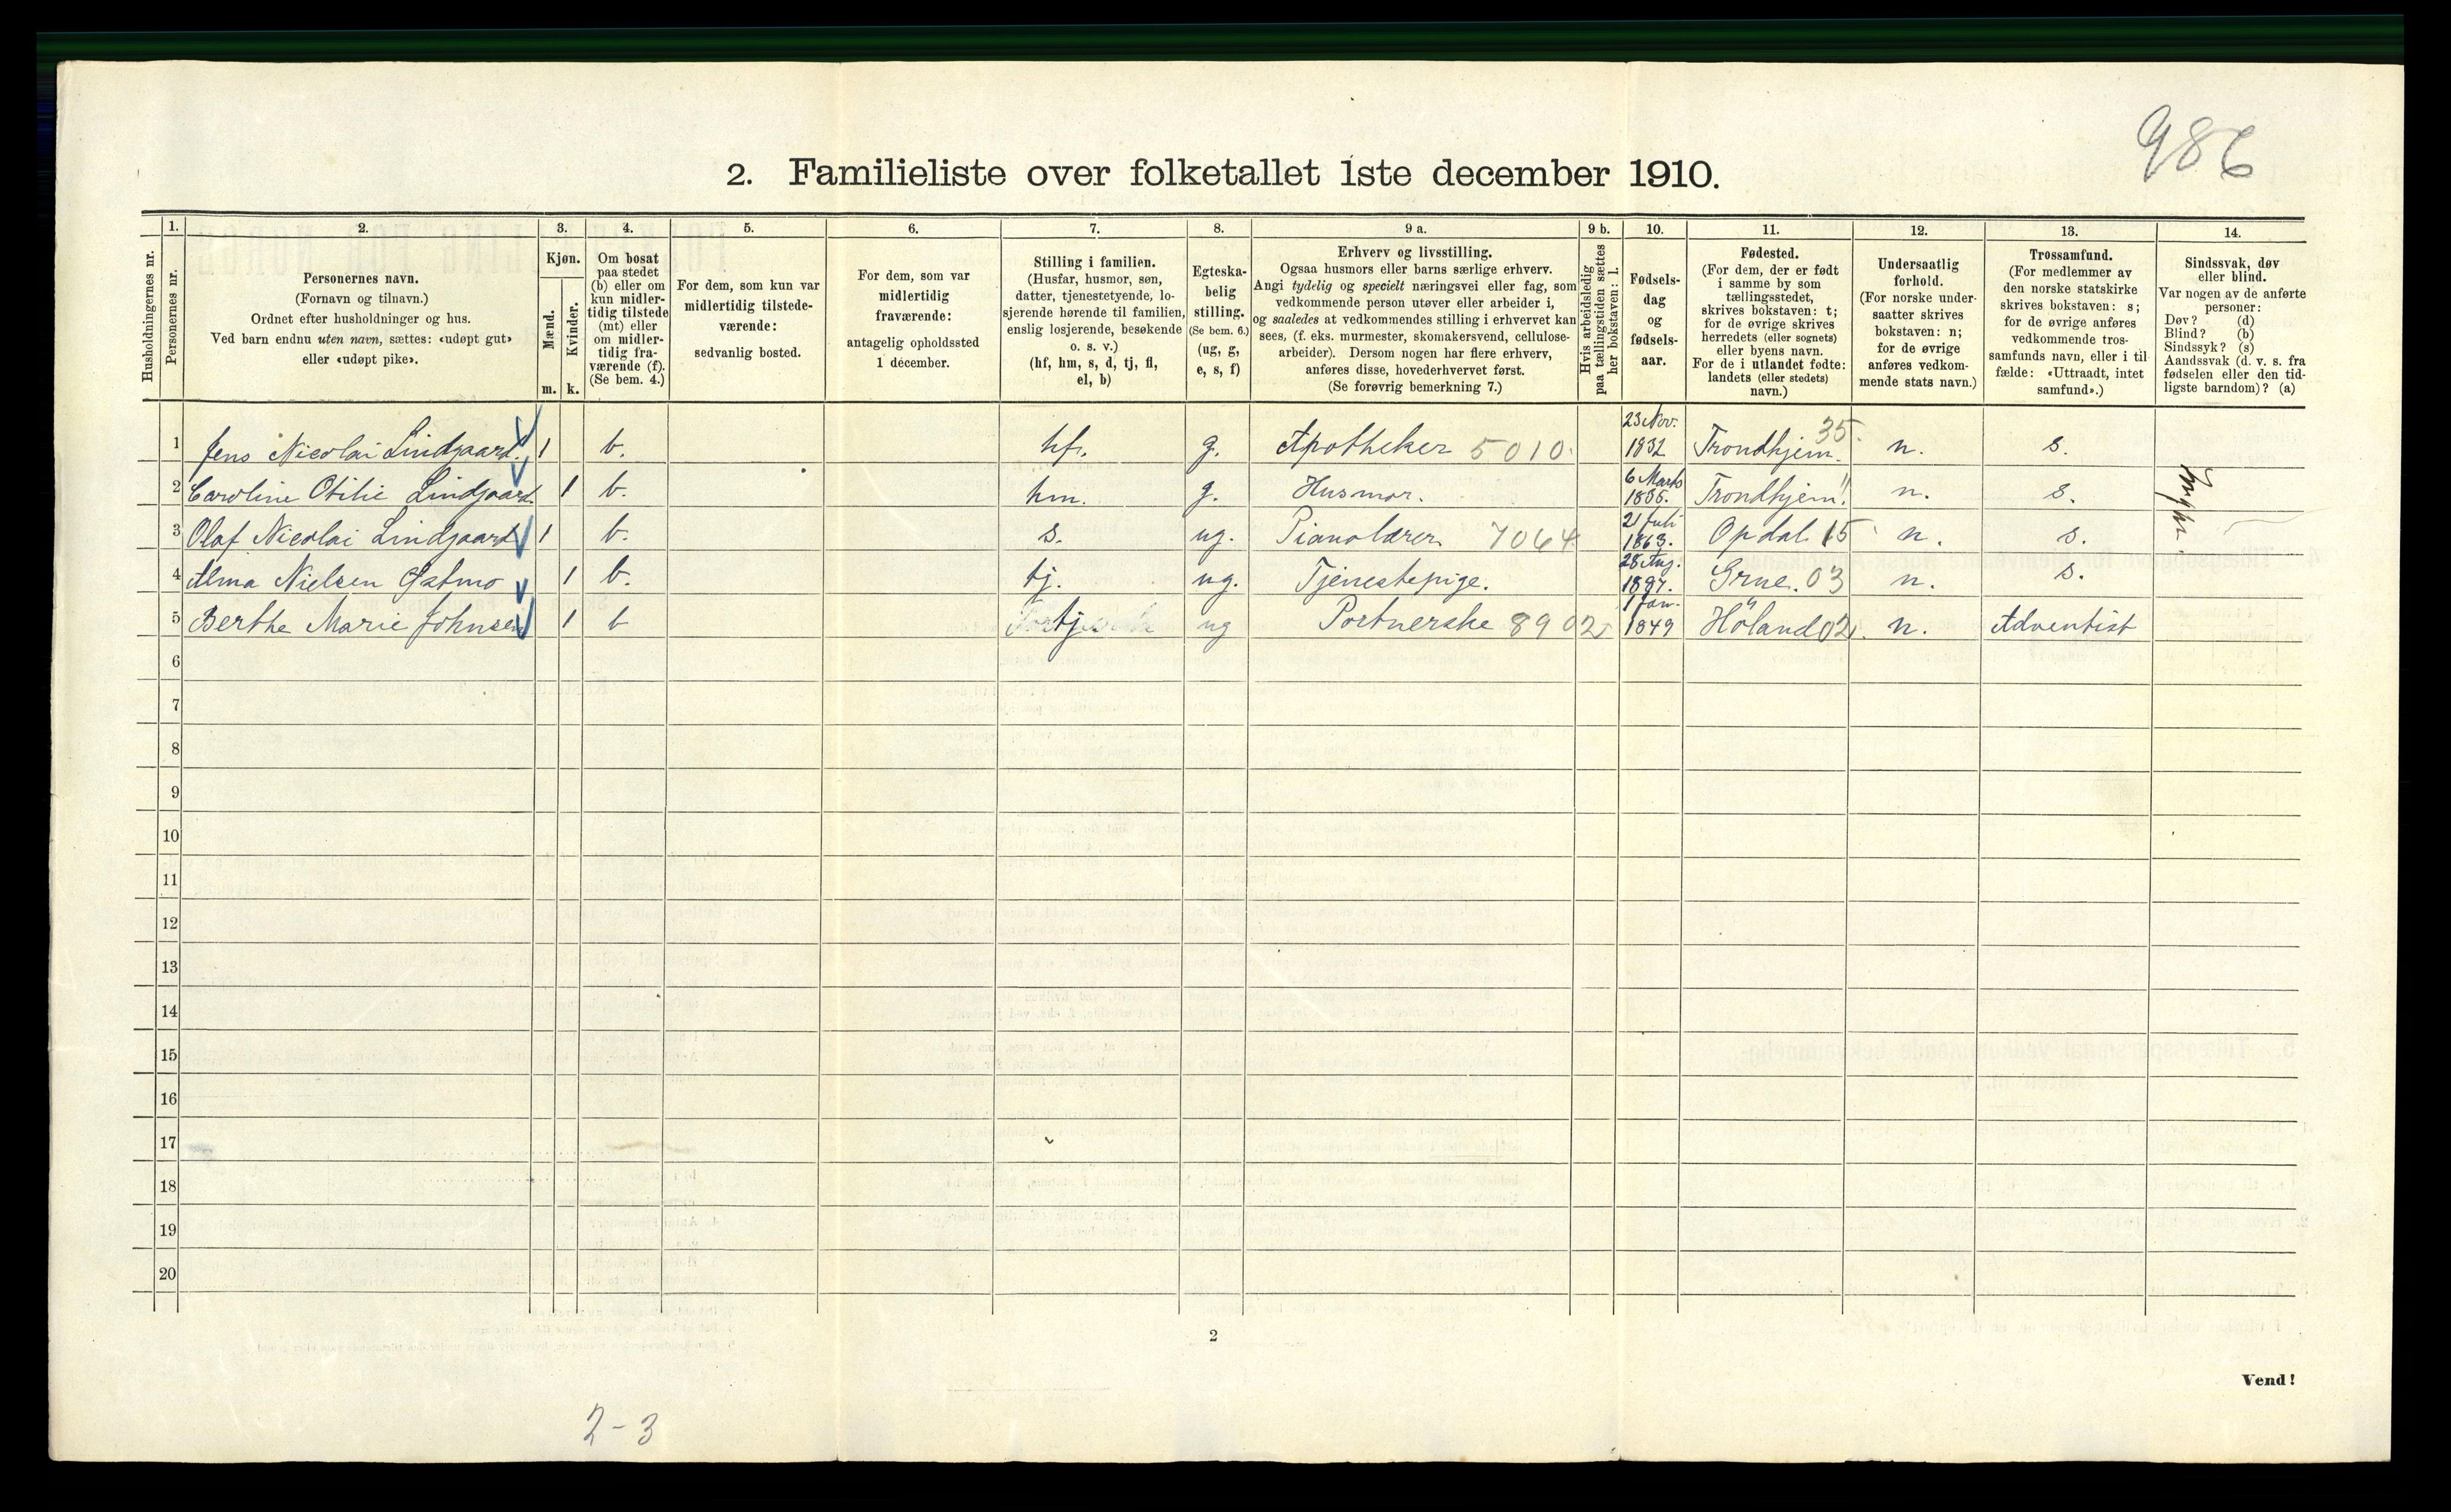 986
2. Familieliste over folketallet 1ste december 1910.
Husholdningernes nr.
1. Personernes nr.
2. Personernes navn. (Fornavn og tilnavn.) Ordnet efter husholdninger og hus. Ved barn endnu uten navn, sættes: «udøpt gut» eller «udøpt pike».
3. Kjøn. Mænd. m. Kvinder. k.
4. Om bosat paa stedet (b) eller om kun midlertidig tilstede (mt) eller om midlertidig fraværende (f). (Se bem. 4.)
5. For dem, som kun var midlertidig tilstedeværende: sedvanlig bosted.
6. For dem, som var midlertidig fraværende: antagelig opholdssted 1 december.
7. Stilling i familien. (Husfar, husmor, søn, datter, tjenestetyende, losjerende hørende til familien, enslig losjerende, besøkende o. s. v.) (hf, hm, s, d, tj, fl, el, b)
8. Egteskabelig stilling. (Se bem. 6.) (ug, g, e, s, f)
9 a. Erhverv og livsstilling. Ogsaa husmors eller barns særlige erhverv. Angi tydelig og specielt næringsvei eller fag, som vedkommende person utøver eller arbeider i, og saaledes at vedkommendes stilling i erhvervet kan sees, (f. eks. murmester, skomakersvend, cellulosearbeider). Dersom nogen har flere erhverv, anføres disse, hovederhvervet først. (Se forøvrig bemerkning 7.)
9 b. Hvis arbeidsledig paa tællingstiden sættes her bokstaven: l.
10. Fødselsdag og fødselsaar.
11. Fødested. (For dem, der er født i samme by som tællingsstedet, skrives bokstaven: t; for de øvrige skrives herredets (eller sognets) eller byens navn. For de i utlandet fødte: landets (eller stedets) navn.)
12. Undersaatlig forhold. (For norske undersaatter skrives bokstaven: n; for de øvrige anføres vedkommende stats navn.)
13. Trossamfund. (For medlemmer av den norske statskirke skrives bokstaven: s; for de øvrige anføres vedkommende trossamfunds navn, eller i tilfælde: «Uttraadt, intet samfund».)
14. Sindssvak, døv eller blind. Var nogen av de anførte personer: Døv? (d) Blind? (b) Sindssyk? (s) Aandssvak (d. v. s. fra fødselen eller den tidligste barndom)? (a)
1 Jens Nicolai Lindgaard. 1 b. hf. g. Apotheker 5010. 23 Nov. 1832 Trondhjem. 35. n. s.
2 Caroline Otilie Lindgaard. 1 b. hm. g. Husmor. 6 Marts 1835. Trondhjem. " n. s.
3 Olaf Nicolai Lindgaard 1 b. s. ug. Pianolærer 7064 21 Juli 1863. Opdal 15 n. s.
4 Alma Nielsen Østmo 1 b. tj. ug. Tjenestepige. 28 Aug. 1887. Grue. 03 n. s.
5 Berthe Marie Johnsen 1 b tj ug Portnerske 8902 1 Jan. 1849 Höland 02. n. Adventist
6
7
8
9
10
11
12
13
14
15
16
17
18
19
20
2
Vend!
2-3